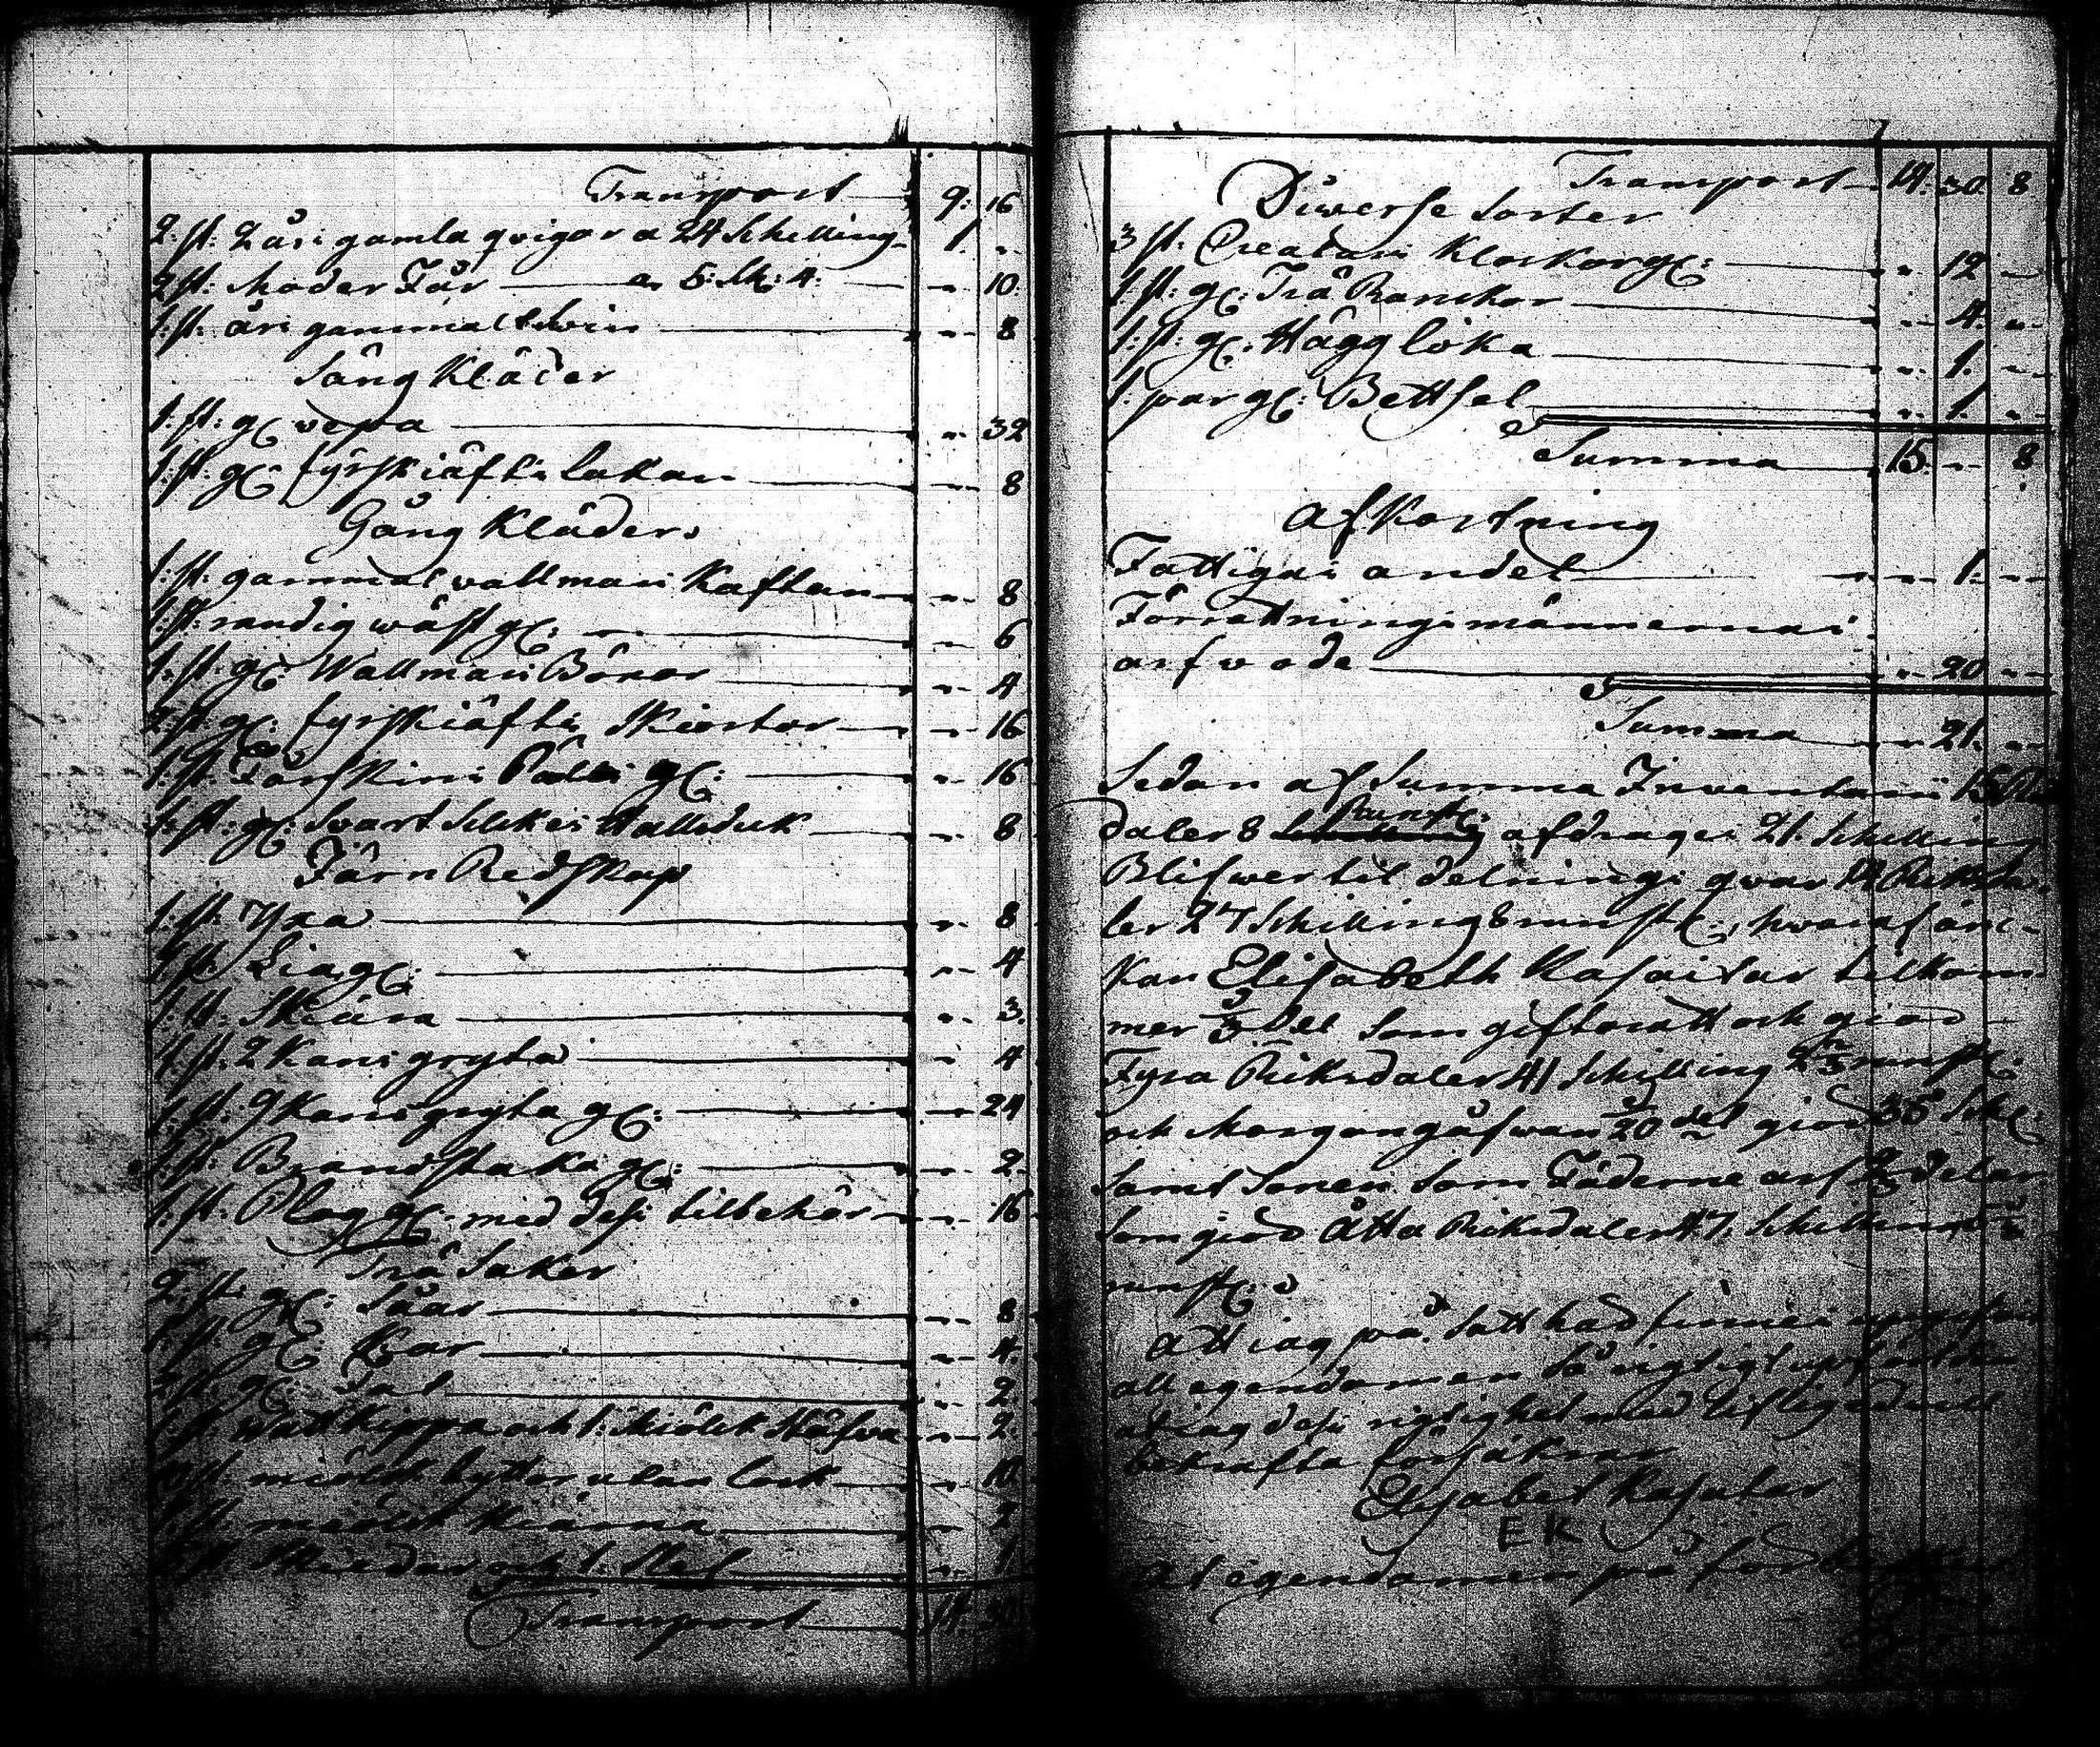 Transport — 9: 16
2: st: 2 års gamla qvigor a 24 Schilling — 1 "
2 st: Moder Får — a 5: Sk: 4: — " 10:
1: st: års gammalt swin — " 8
Säng Kläder
1: st: gl vepa — " 32
1: st: gl: fyrskiäfts lakan — " 8
Gång Kläder:
1: st: gammal vallmars Kaftan — " 8
1: st: randig wäst gl: — " 6
1: st: gl: Wallmars Böxor — " 4
2: st: gl: fyrskiäfts Skiortor — " 16
1: st: Fårskins Päls gl: — " 16
1: st: gl: Svart Silkes Halsduk — " 8
Järn Redskap
1: st: Yxa — " 8
1: st: Lia gl: — " 4
1: st: Skiära — " 3.
1: st: 2 Kans gryta — " 4
1: st: 9 Kans gryta gl: — " 24
1: st: Brandstaka gl: — " 2.
1: st: Plog gl: med dess tilbehör — " 16
Trä Saker
2: st: gl: Såar — " 8
1: st: gl: Kar — " 4.
gl: — " 2.
1: st: Watt Kippa och 1: Miölck Stäfva — " 2.
st: miölck byttor utan lock — " 10
1: st: miölck Kiärna — " 2
och 1: — " 1
Transport — 14: 30
Transport — 14: 30 8
Diwerse Sorter
3 st: Creaturs Klockor gl: — " 12 "
1: st: gl: Trä — " 4. "
1: st: gl: Hägg loka — " 1. "
1: par gl: Bettsel — " 1. "
Summa — 15. " 8
Afkortning
Fattigas andel — " 1. "
Förrättningsmännernas
arfvode — " 20 "
Summa — " 21. "
Sedan af Summa Inventarii 15 Riks
daler 8 Runst: afdrages 21. Schilling
Blifwer til delnings qvar 14 Riksda-
ler 27 Schilling 8 runst:, hwaraf än-
kan Elisabeth tilkom-
mer 1/3 del Som giftorätt och giör
Fyra Riksdaler 41 Schilling 2 2/3 runst:
och Morgongåfwan 1/20 del giör 35 Sch:
Samt Sonen Som Fäderne arf 2/3 delar
Som giör Åtta Riksdaler 47: Schilling
runst:
Att iag på Sätt här finnes upgifwit
all egendomen så rigtigt
at iag dess rigtighet med liflig ed
bekräfta försäkrar
Elisabet
E K
At egendomen på